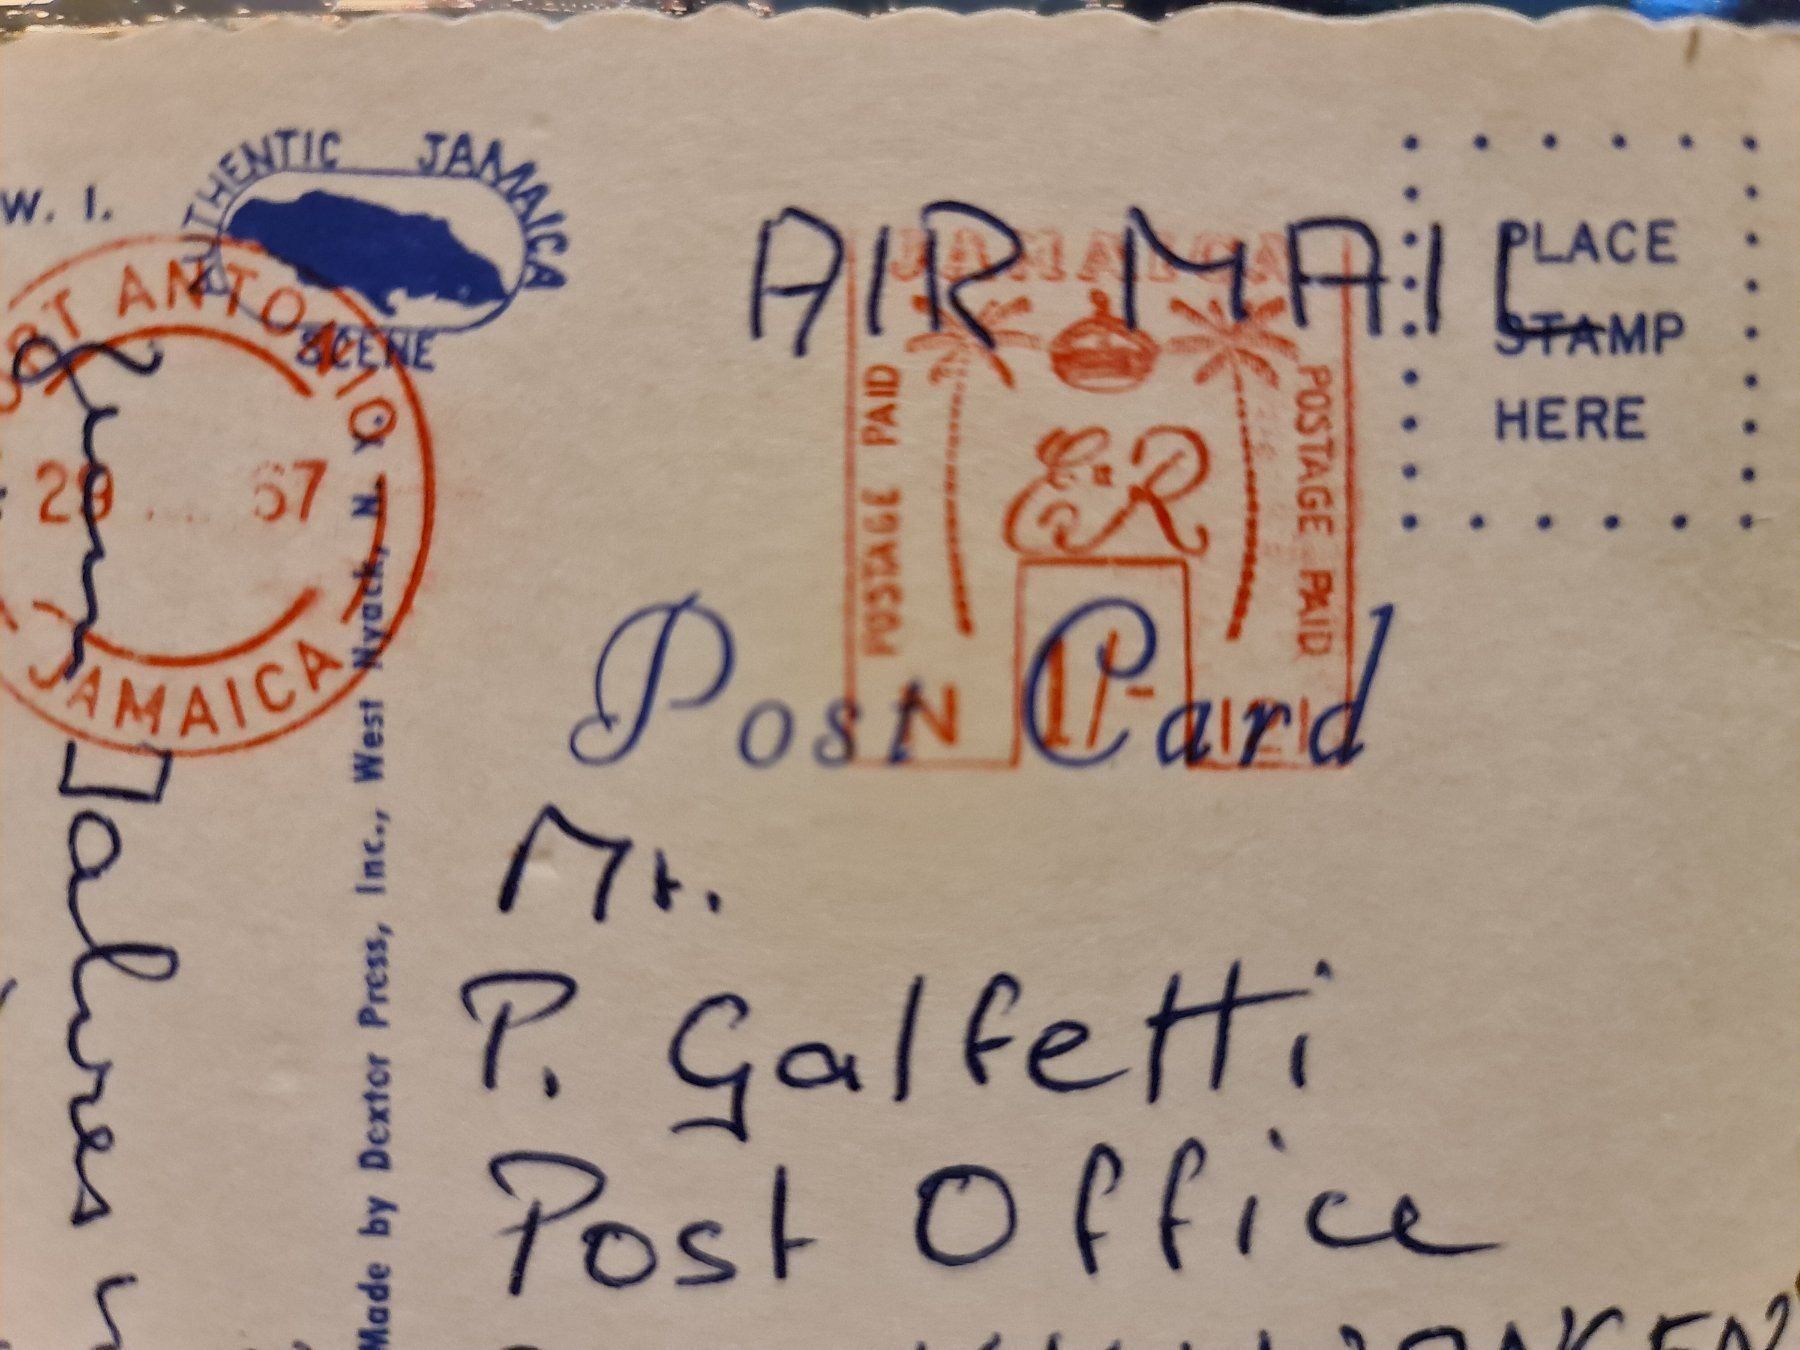 W. I.
AUTHENTIC JAMAICA
SCENE
PORT ANTONIO
67
JAMAICA
AIR MAIL
JAMAICA
POSTAGE PAID
E R
POSTAGE PAID
N 1/-
PLACE
STAMP
HERE
Post Card
Made by Dexter Press, Inc., West Nyack, N. Y.
Mr.
P. Galfetti
Post Office